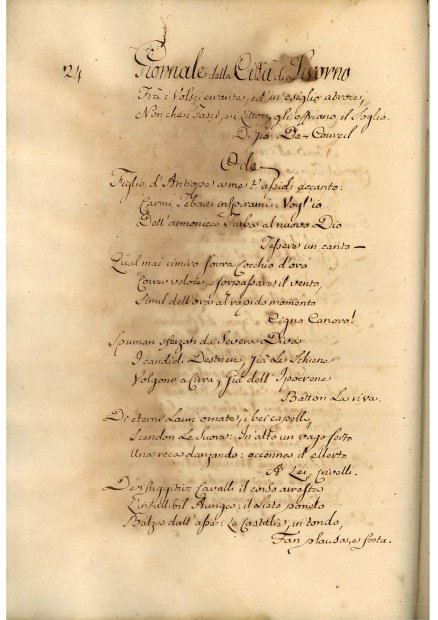 24 Giornale della Città di Livorno
Frà i Volsci errante, ed un' esiglio atroce,
Non che i Fasci, gli offriano, il Soglio.
Di De-Coureil
Ode
Figlio, d'Antiope a me t'assidi accanto:
Carmi Tebaici inspirami: Voglio
Dell'armonica Turba al nuovo Dio
Tessere un canto —
Qual mai rimiro sovra Cocchio d'oro
Correr veloce, e sorpassare il vento,
Simil dell'ora al rapido momento
Cigno Canoro!
Spuman sferzati da Severa Diva
I candidi Destrieri, già Le Schiene
Volgono a Cirra, Già dell' Ipocrene
Batton La riva.
Di eterni Lauri ornate, i bei capelli,
Scendon Le Suore: In'alto un vago serto
Una reca danzando: accenna il
A Lei,
De' fuggitivi Cavalli il corso arresta
L'infallibil Auriga: il lieto pondo
Balza dall'asse: Le Castalie, in tondo,
Fan plauso, e festa.